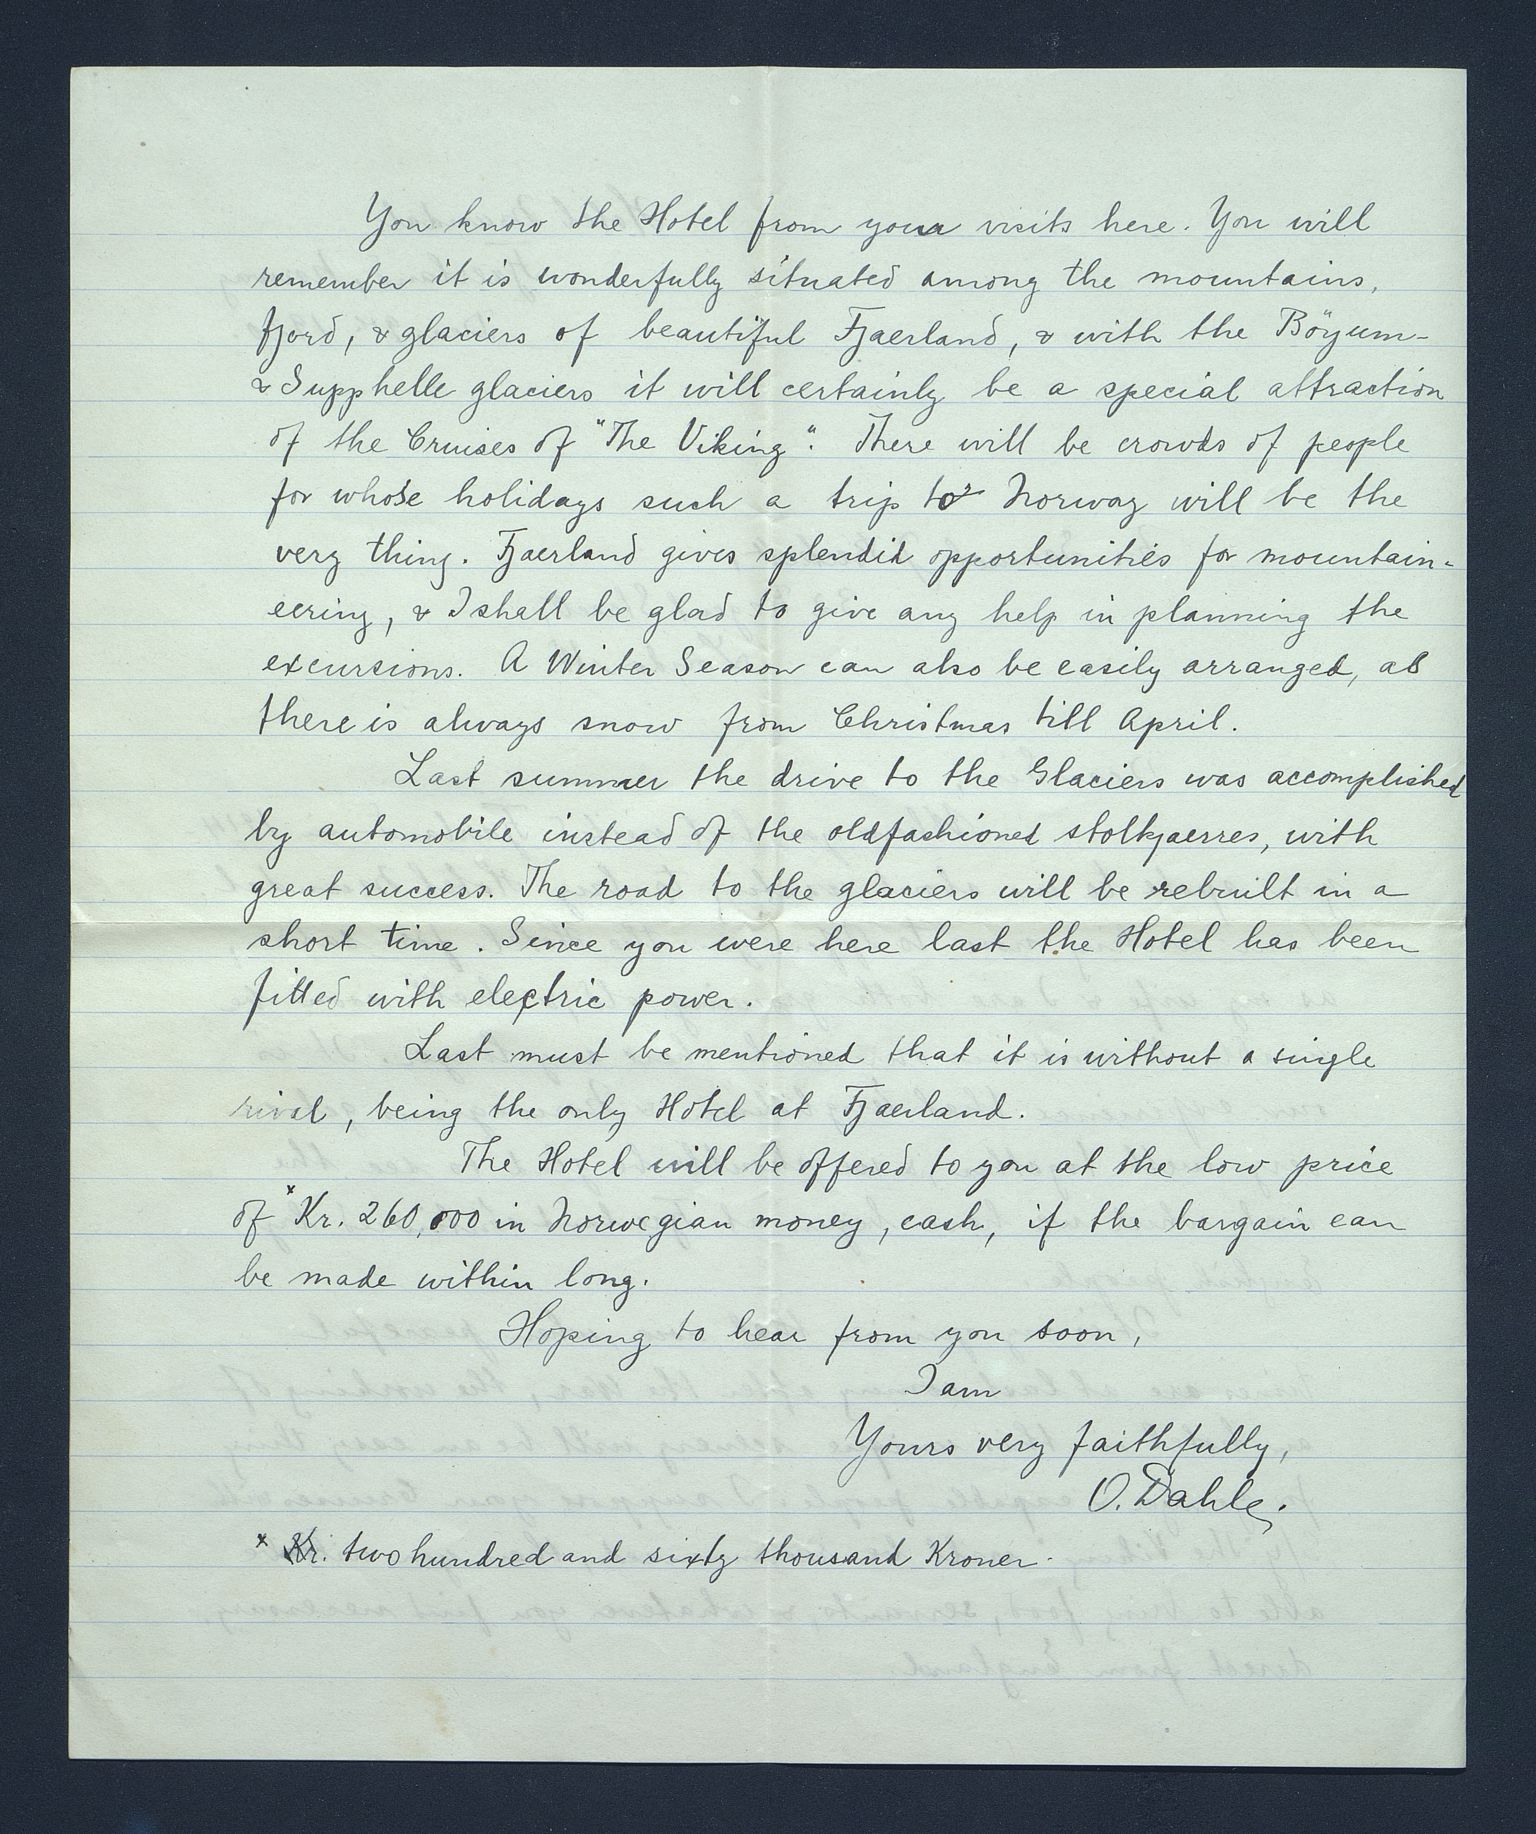 You know the Hotel from your visits here. You will
remember it is wonderfully situated among the mountains,
fjord, & glaciers of beautiful Fjaerland, & with the Böyum-
& Supphelle glaciers it will certainly be a special attraction
of the Cruises of "The Viking". There will be crowds of people
for whose holidays such a trip to Norway will be the
very thing. Fjaerland gives splendid opportunities for mountain-
eering, & I shall be glad to give any help in planning the
excursions. A Winter Season can also be easily arranged, as
there is always snow from Christmas till April.
Last summer the drive to the Glaciers was accomplished
by automobile instead of the oldfashioned stolkjaerres, with
great success. The road to the glaciers will be rebuilt in a
short time. Since you were here last the Hotel has been
fitted with electric power.
Last must be mentioned that it is without a single
rival, being the only Hotel at Fjaerland.
The Hotel will be offered to you at the low price
of x Kr. 260,000 in Norwegian money, cash, if the bargain can
be made within long.
Hoping to hear from you soon,
I am
Yours very faithfully,
O. Dahle.
x Kr. two hundred and sixty thousand Kroner.